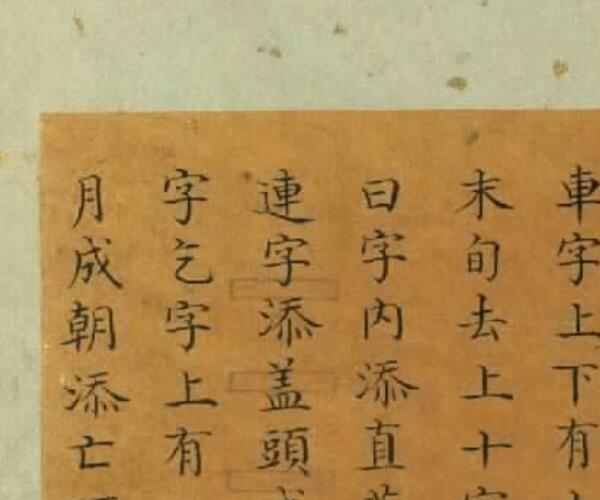 車字上下有
末旬去上十
曰字内添直
連字添盖頭
字乞字上有
月成朝添亡